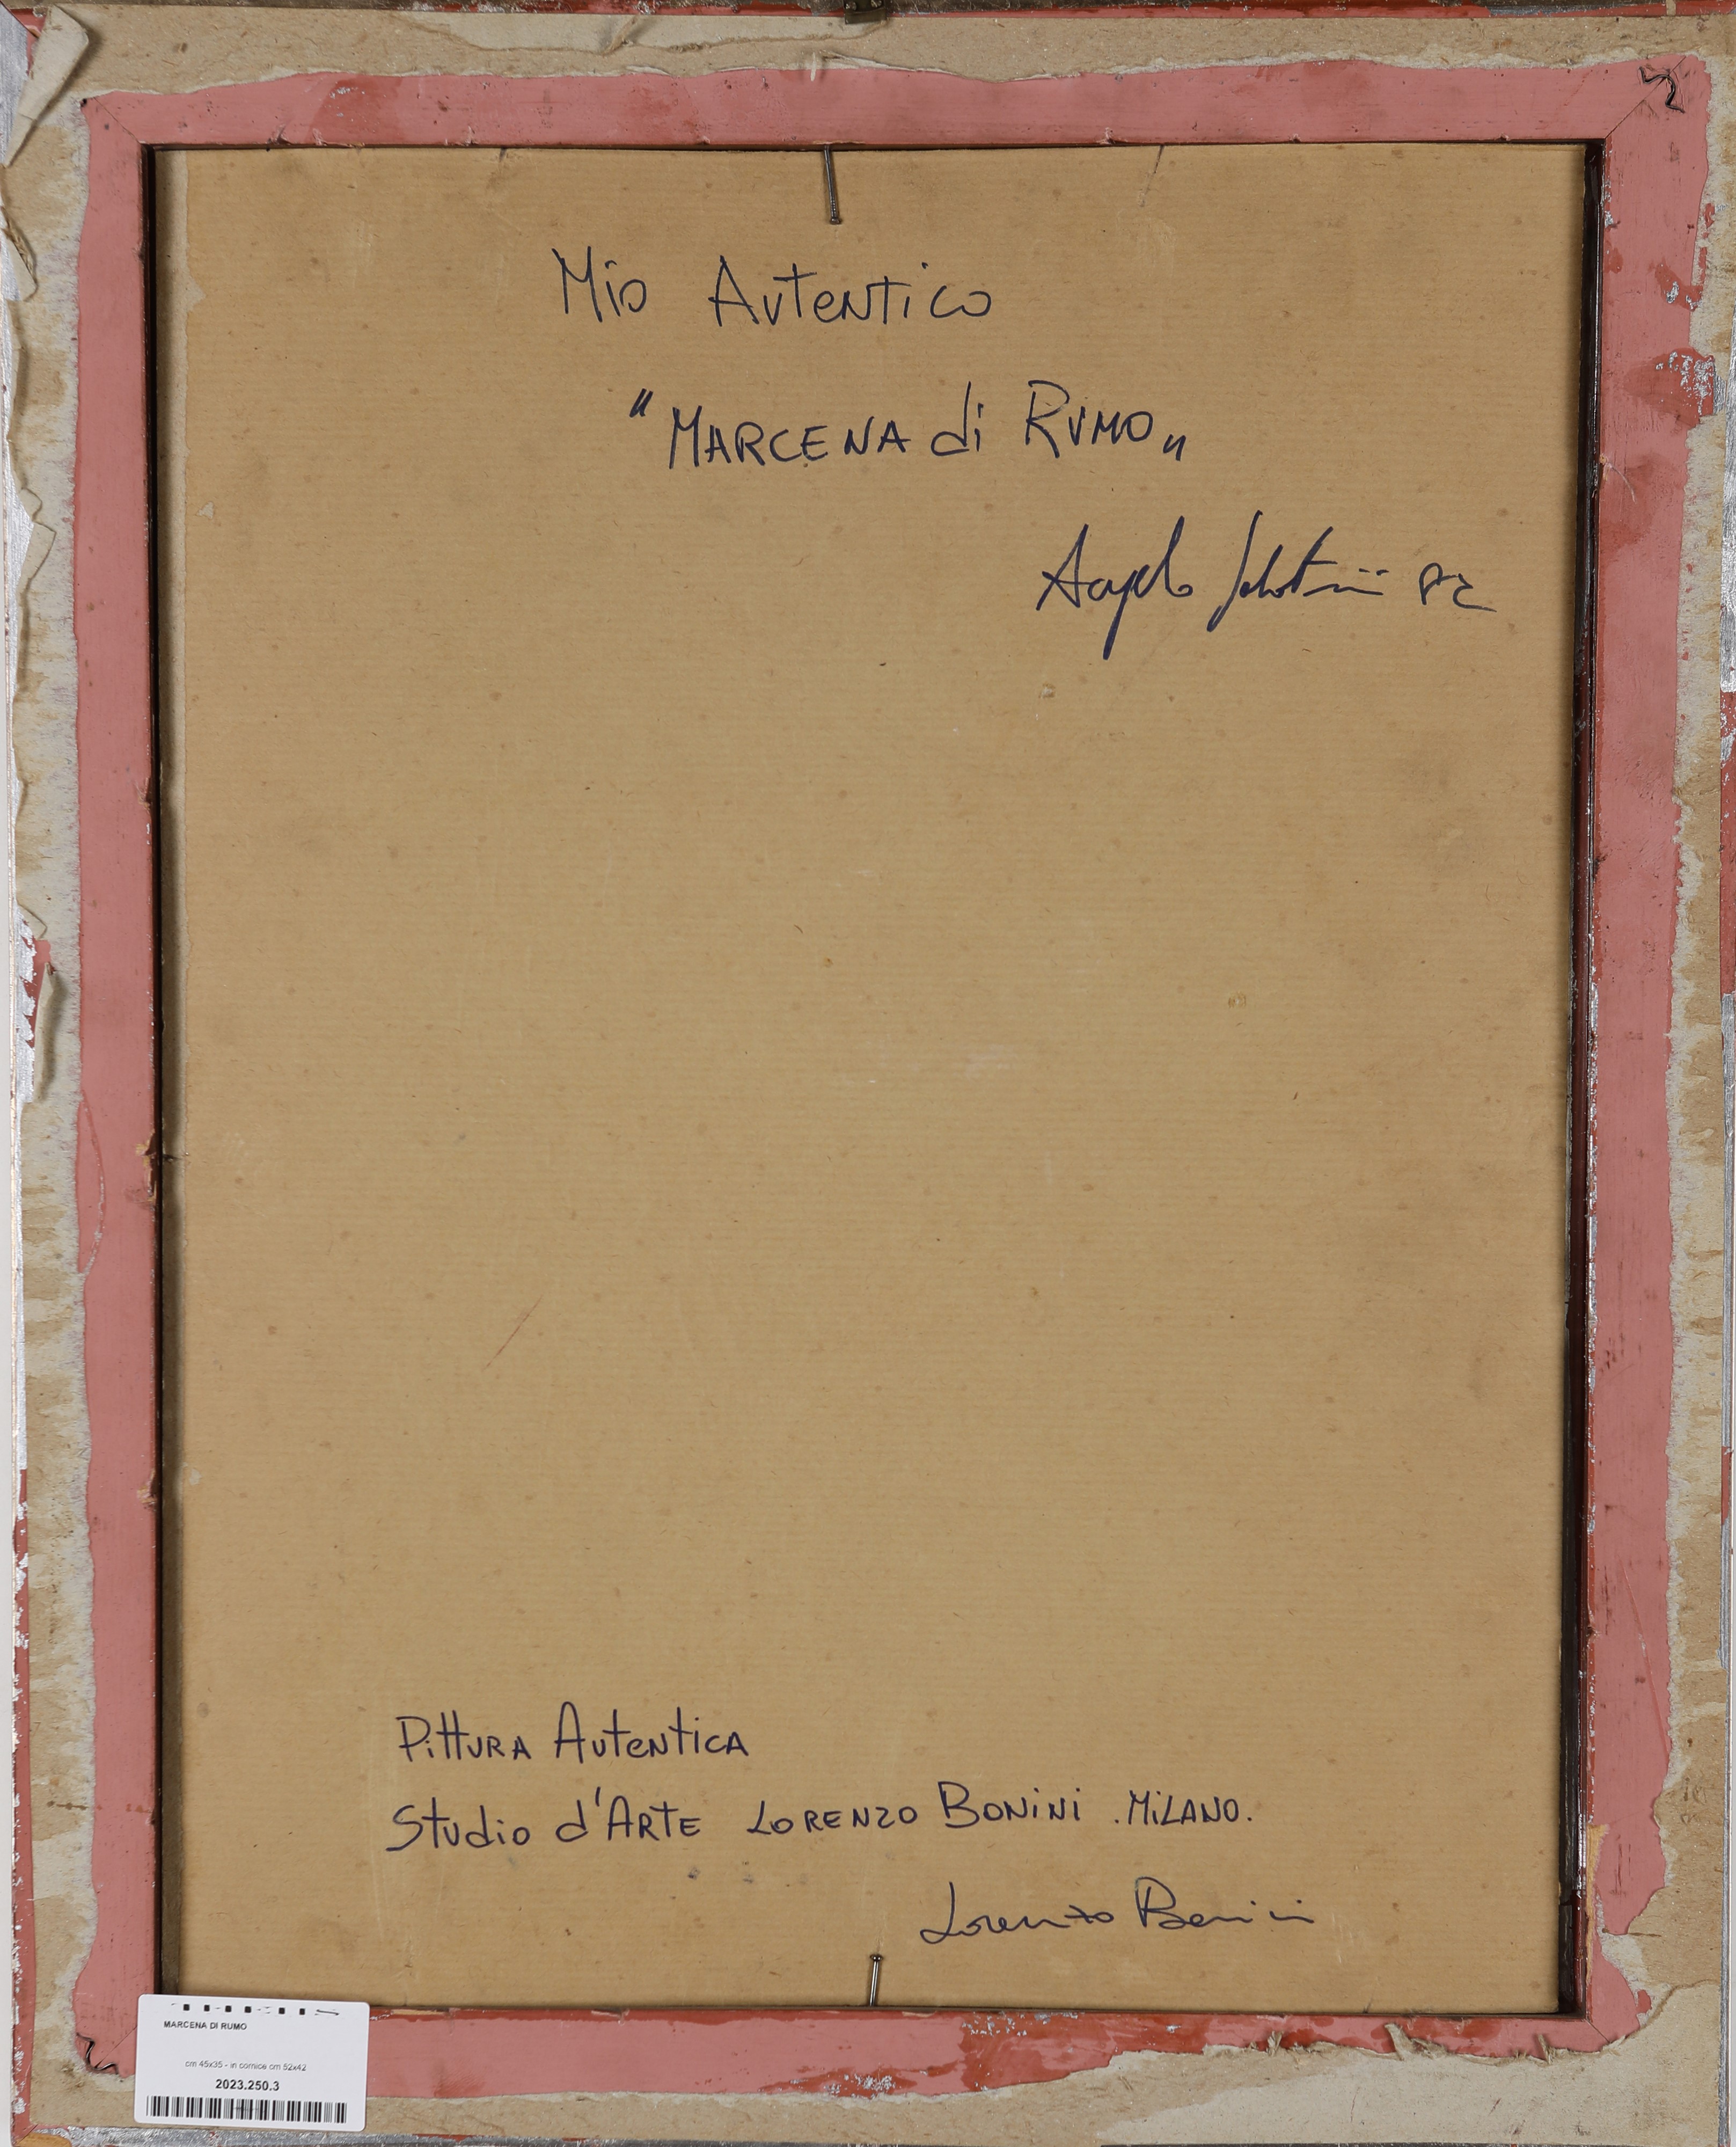 Mio Autentico
"MARCENA di RUMO„
Angelo
Pittura Autentica
Studio d'Arte Lorenzo Bonini . Milano.
Lorenzo Bonini
MARCENA DI RUMO
cm 45x35 - in cornice cm 52x42
2023.250.3